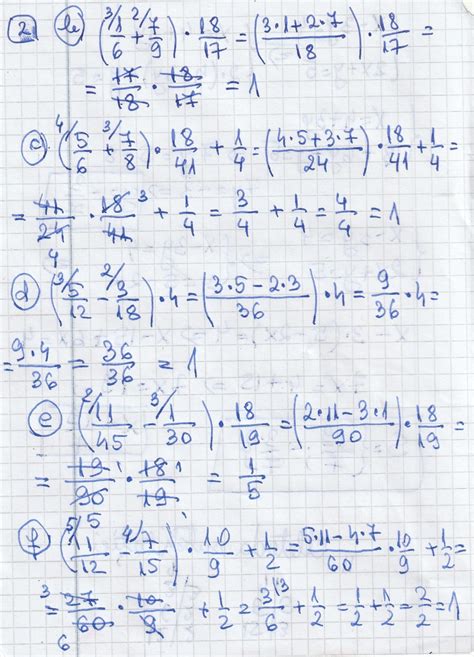 2 b) (³⁄1/6 + ²⁄7/9) · 18/17 = ((3·1+2·7)/18) · 18/17 =
= 17/18 · 18/17 = 1
c) (⁴⁄5/6 + ³⁄7/8) · 18/41 + 1/4 = ((4·5+3·7)/24) · 18/41 + 1/4 =
= 41/24 4 · 18 3/41 + 1/4 = 3/4 + 1/4 = 4/4 = 1
d) (³⁄5/12 - ²⁄3/18) · 4 = ((3·5-2·3)/36) · 4 = 9/36 · 4 =
= 9·4/36 = 36/36 = 1
e) (²⁄11/45 - ³⁄1/30) · 18/19 = ((2·11-3·1)/90) · 18/19 =
= 19 1/90 · 18 1/19 = 1/5
f) (⁵⁄11/12 - ⁴⁄7/15) · 10/9 + 1/2 = (5·11-4·7)/60 · 10/9 + 1/2 =
= 3 27/60 6 · 10/9 + 1/2 = 3/6 (3 + 1/2 = 1/2 + 1/2 = 2/2 = 1